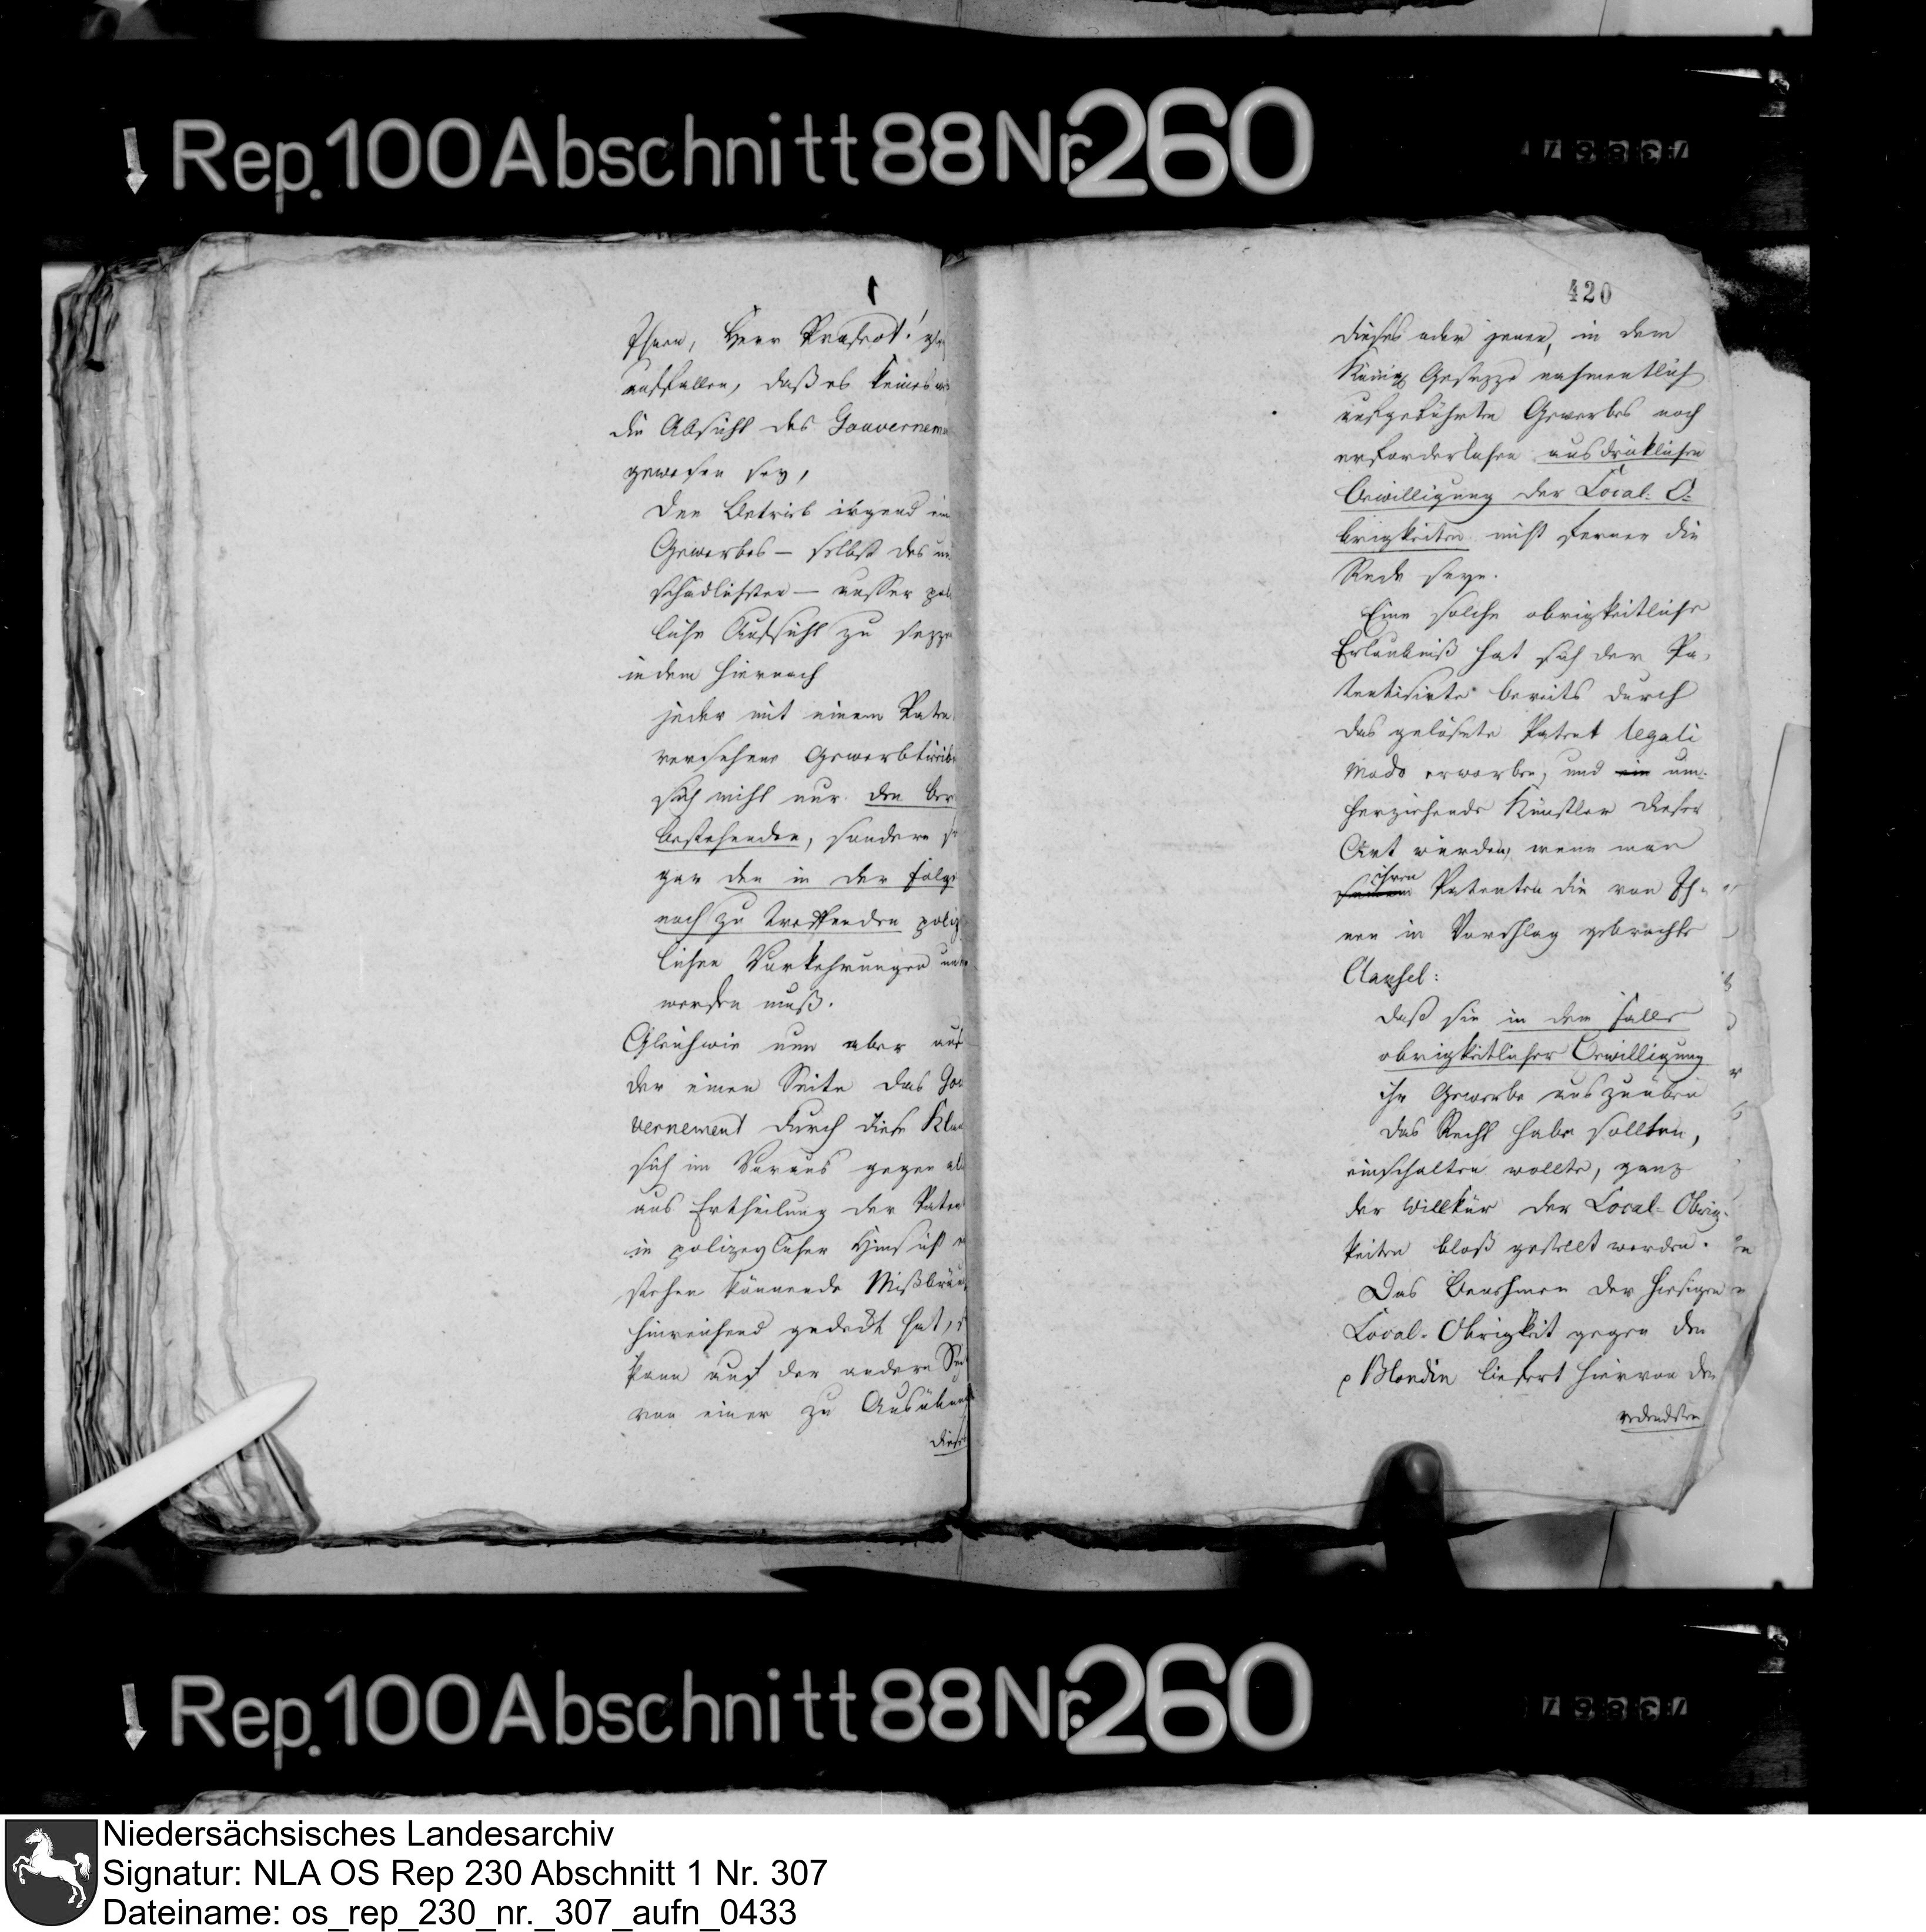 Rep. 100 Abschnitt 88 Nr. 260
73867
Ihnen, Herr Praefect!
auffallen, daß es keines
die Absicht des Gouvernem
gewesen sey,
den Betrieb irgend ein
Gewerbes — selbst des un
schädlichsten — ausser pol
licher Aufsicht zu sezze
indem hiernach
jeder mit einem Paten
versehene Gewerbtreibe
sich nicht nur den ber
bestehenden, sondern so
gar den in der Folge
noch zu treffenden poliz
lichen Vorkehrungen unter
werfen muß.
Gleichwie nun aber auf
der einen Seite das Gou
vernement durch diese Klau
sich im Voraus gegen alle
aus Ertheilung der Paten
in polizeylicher Hinsicht
stehen könnende Mißbräu
hinreichend gedekt hat, s
kann auf der andern Seit
von einer zu Ausübung
dieses
420
dieses oder jenen, in dem
Königl Gesezze nahmentlich
aufgeführten Gewerbes noch
erforderlichen ausdrüklichen
Bewilligung der Local-O-
brigkeiten nicht ferner die
Rede seyn.
Eine solche obrigkeitliche
Erlaubniß hat sich der Pa-
tentisirte bereits durch
das gelösete Patent legali
modo erworben, und ein um-
herziehende Künstler dieser
Art würden, wenn man
ihren
seinem Patenten die von Ih-
nen in Vorschlag gebrachte
Clausel:
daß sie in dem Falle
obrigkeitlicher Bewilligung
ihr Gewerbe auszuüben
das Recht haben sollten,
einschalten wollte, ganz
der Willkür der Local-Obrig-
keiten bloß gestellt werden.
Das Benehmen der hiesigen
Local-Obrigkeit gegen den
p Blondin liefert hiervon den
redendsten
Rep. 100 Abschnitt 88 Nr. 260
73867
Niedersächsisches Landesarchiv
Signatur: NLA OS Rep 230 Abschnitt 1 Nr. 307
Dateiname: os_rep_230_nr._307_aufn_0433